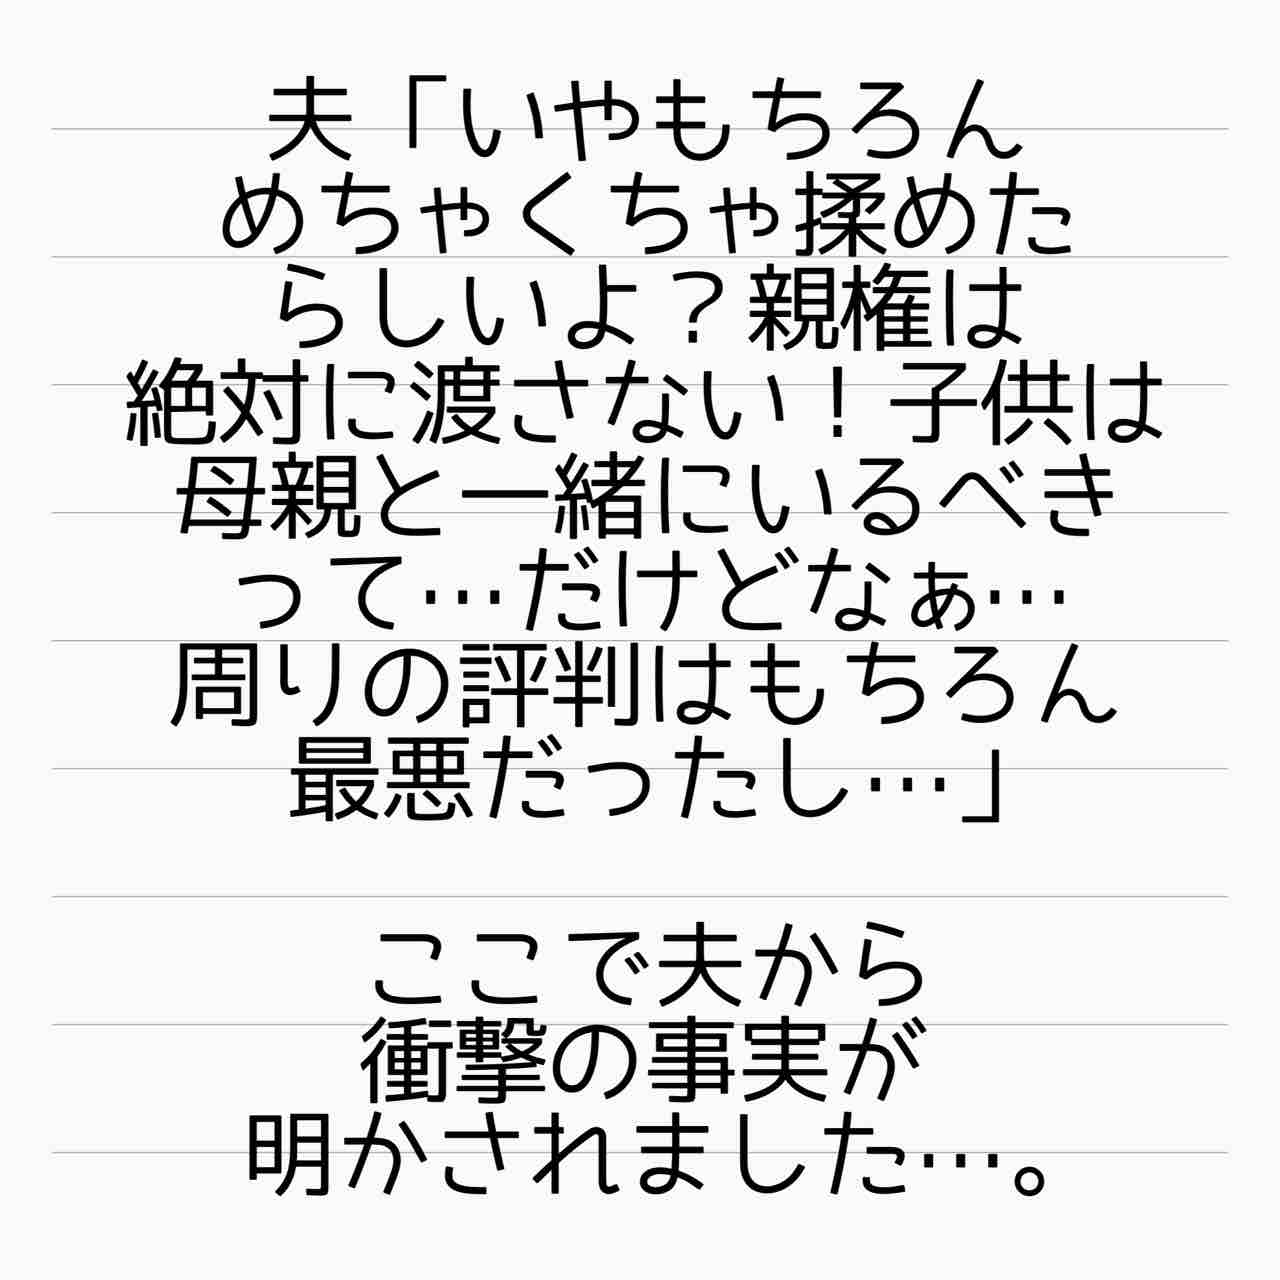 夫「いやもちろん
めちゃくちゃ揉めた
らしいよ？親権は
絶対に渡さない！子供は
母親と一緒にいるべき
って…だけどなぁ…
周りの評判はもちろん
最悪だったし…」
ここで夫から
衝撃の事実が
明かされました…。